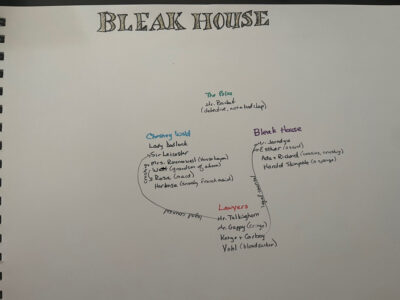 BLEAK HOUSE
The Police
Mr. Bucket
(detective, not a bad chap)
Chesney Wold
Lady Dedlock
Sir Leicester
Mrs. Rouncewell (housekeeper)
(grandson of above)
Rosa (maid)
Hortense (french maid)
Bleak House
Mr. Jarndyce
Esther (ward)
Ada + Richard (cousins,
Harold Skimpole (sponge)
legal counsel
legal counsel
Lawyers
Mr. Tulkinghorn
Mr. Guppy (cringe)
Kenge + Carboy
Vohl (bloodsucker)